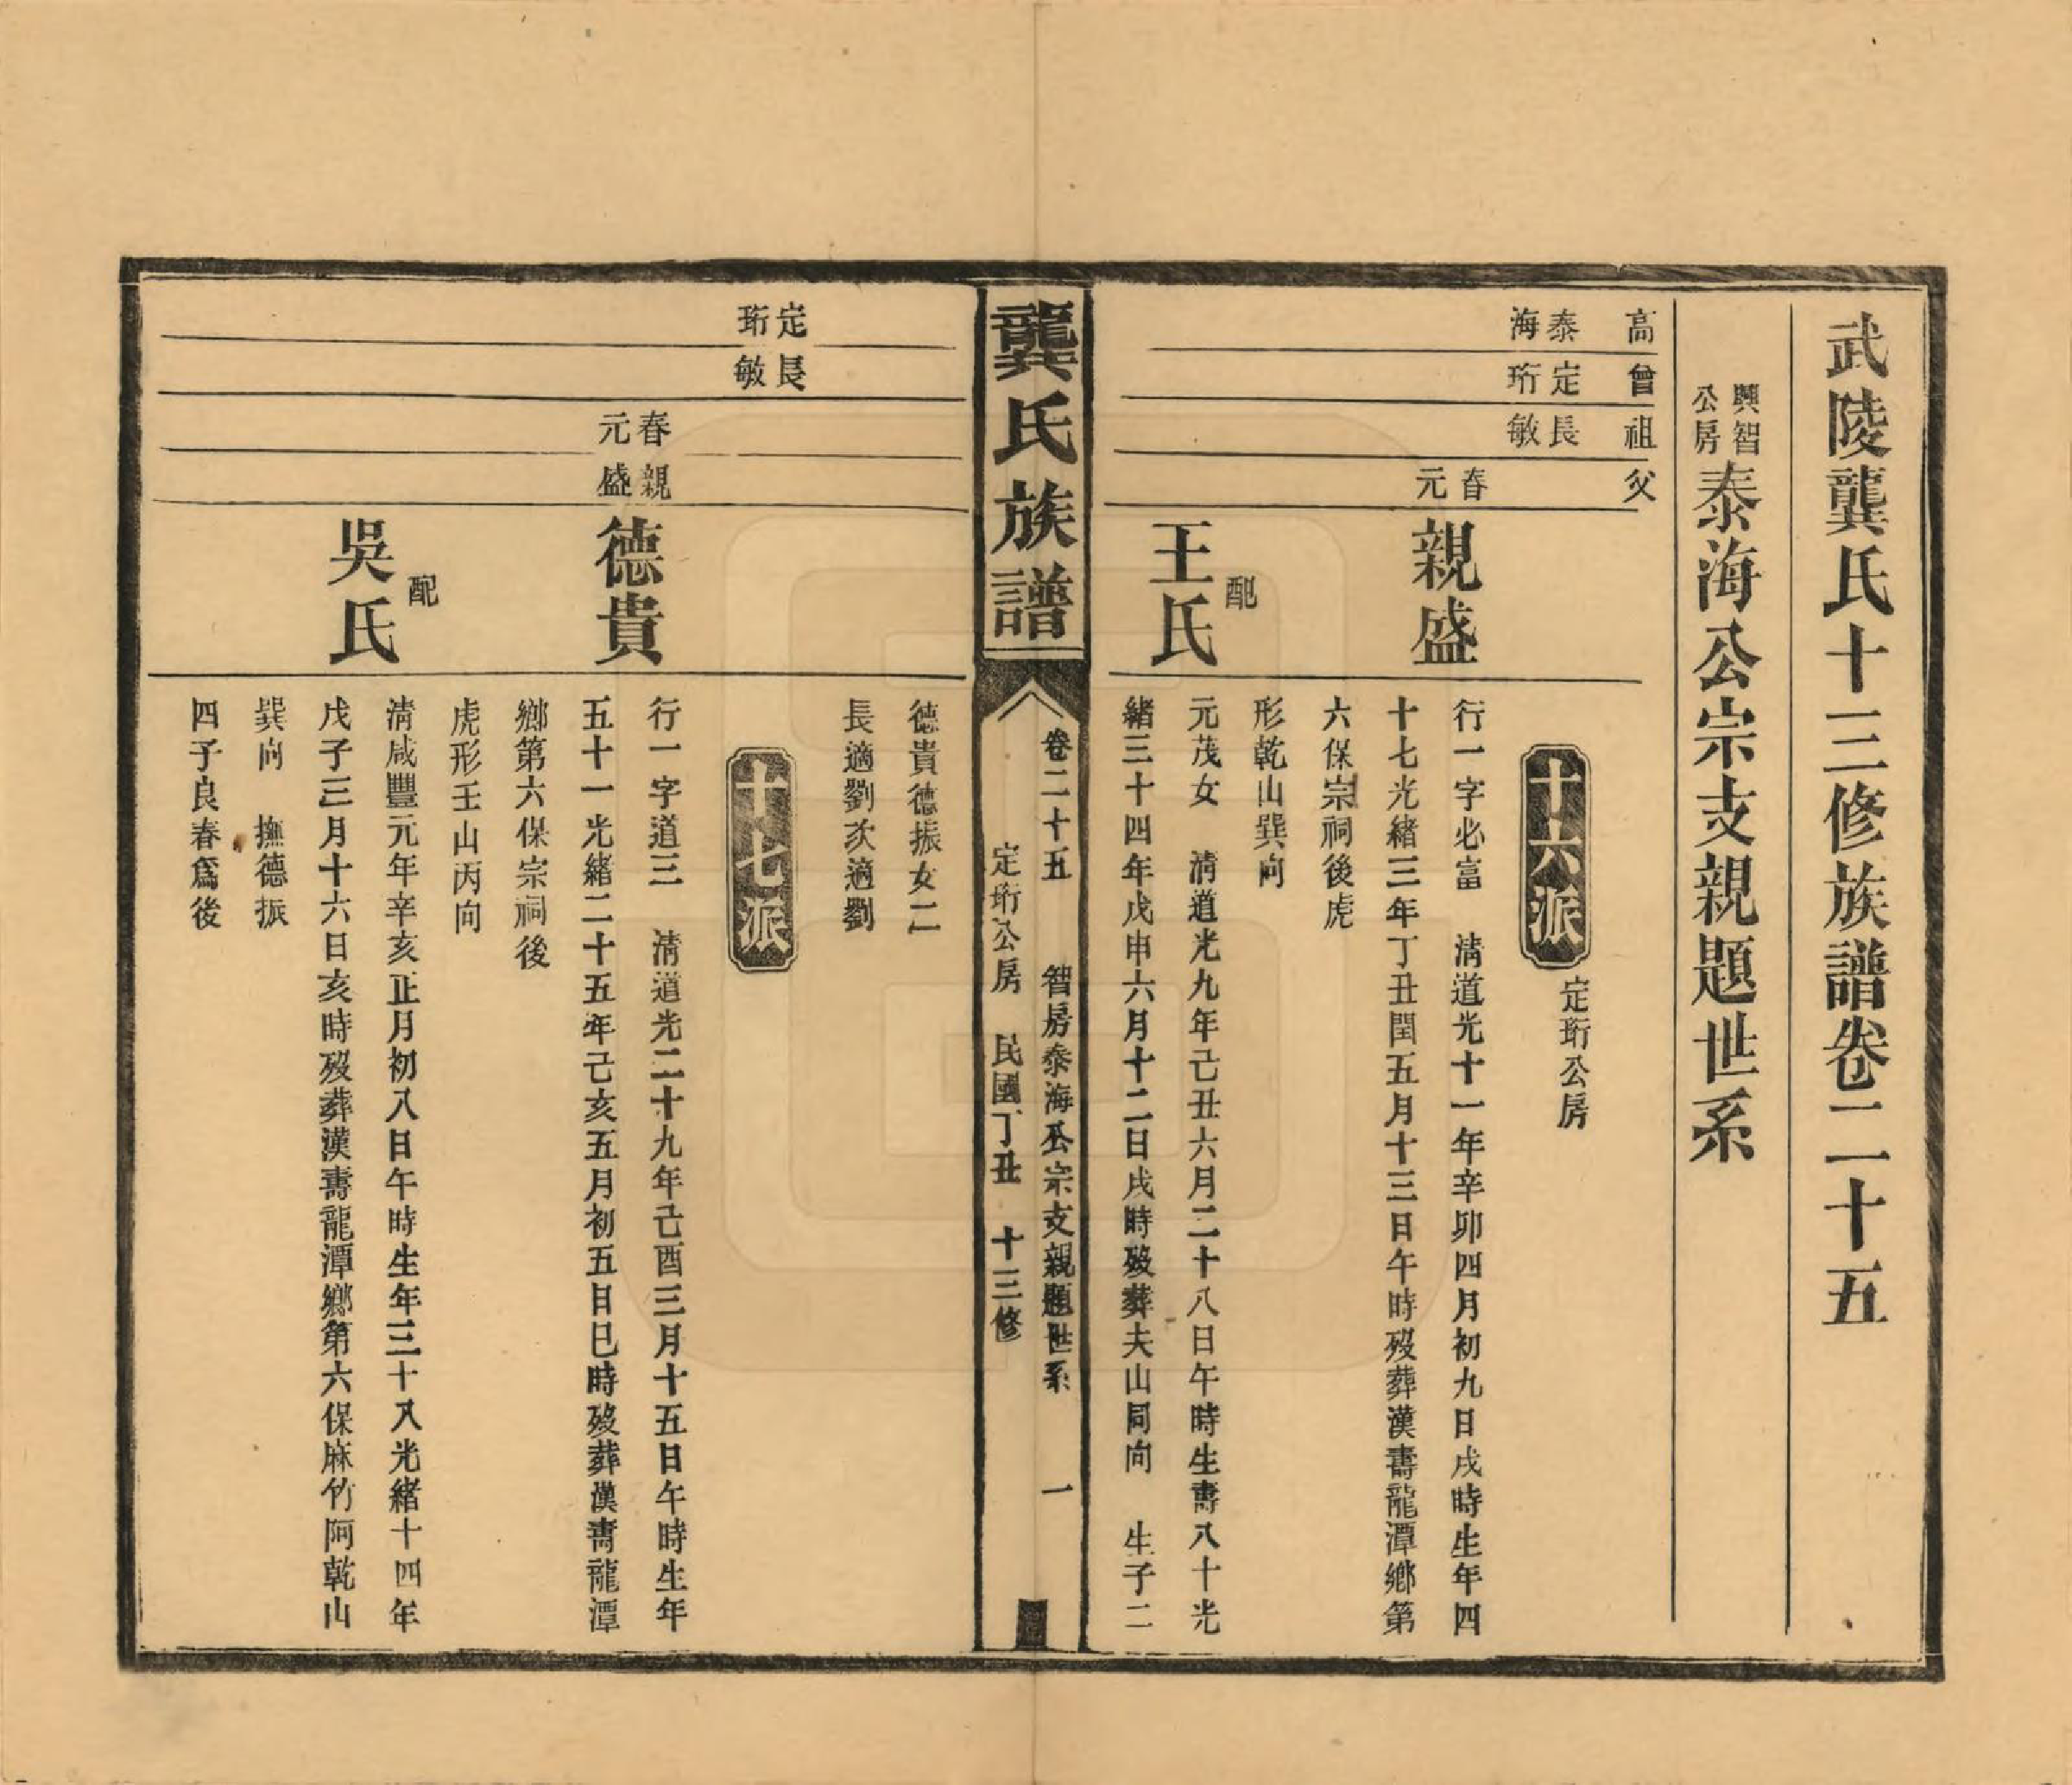 武陵龔氏十三修族譜卷二十五
興智公房
泰海公宗支親題世系
高
曾
祖
父
泰海
定珩
長敏
春元
親盛
十六派
定珩公房
行一字必富　清道光十一年辛卯四月初九日戌時生年四
十七光緒三年丁丑閏五月十三日午時歿葬漢壽龍潭鄉第
六保宗祠後虎
形乾山巽向
配
王氏
元茂女　清道光九年己丑六月二十八日午時生壽八十光
緒三十四年戊申六月十二日戌時歿葬夫山同向　生子二
龔氏族譜
卷二十五　智房泰海公宗支親題世系　一
定珩公房　民國丁丑　十三修
德貴德振女二
長適劉次適劉
定珩
長敏
十七派
春元
親盛
德貴
行一字道三　清道光二十九年己酉三月十五日午時生年
五十一光緒二十五年己亥五月初五日巳時歿葬漢壽龍潭
鄉第六保宗祠後
虎形壬山丙向
配
吳氏
清咸豐元年辛亥正月初八日午時生年三十八光緒十四年
戊子三月十六日亥時歿葬漢壽龍潭鄉第六保麻竹阿乾山
巽向　撫德振
四子良春爲後